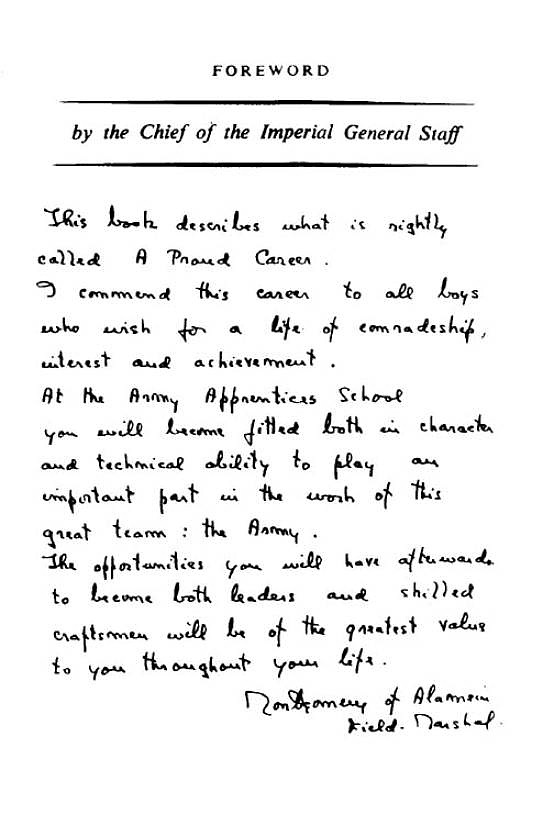 FOREWORD
by the Chief of the Imperial General Staff
This book describes what is rightly
called A Proud Career .
I commend this career to all boys
who wish for a life of comradeship,
interest and achievement .
At the Army Apprentices School
you will become fitted both in character
and technical ability to play an
important part in the work of this
great team : the Army .
The opportunities you will have afterwards
to become both leaders and skilled
craftsmen will be of the greatest value
to you throughout your life .
Montgomery of Alamein
Field-Marshal.